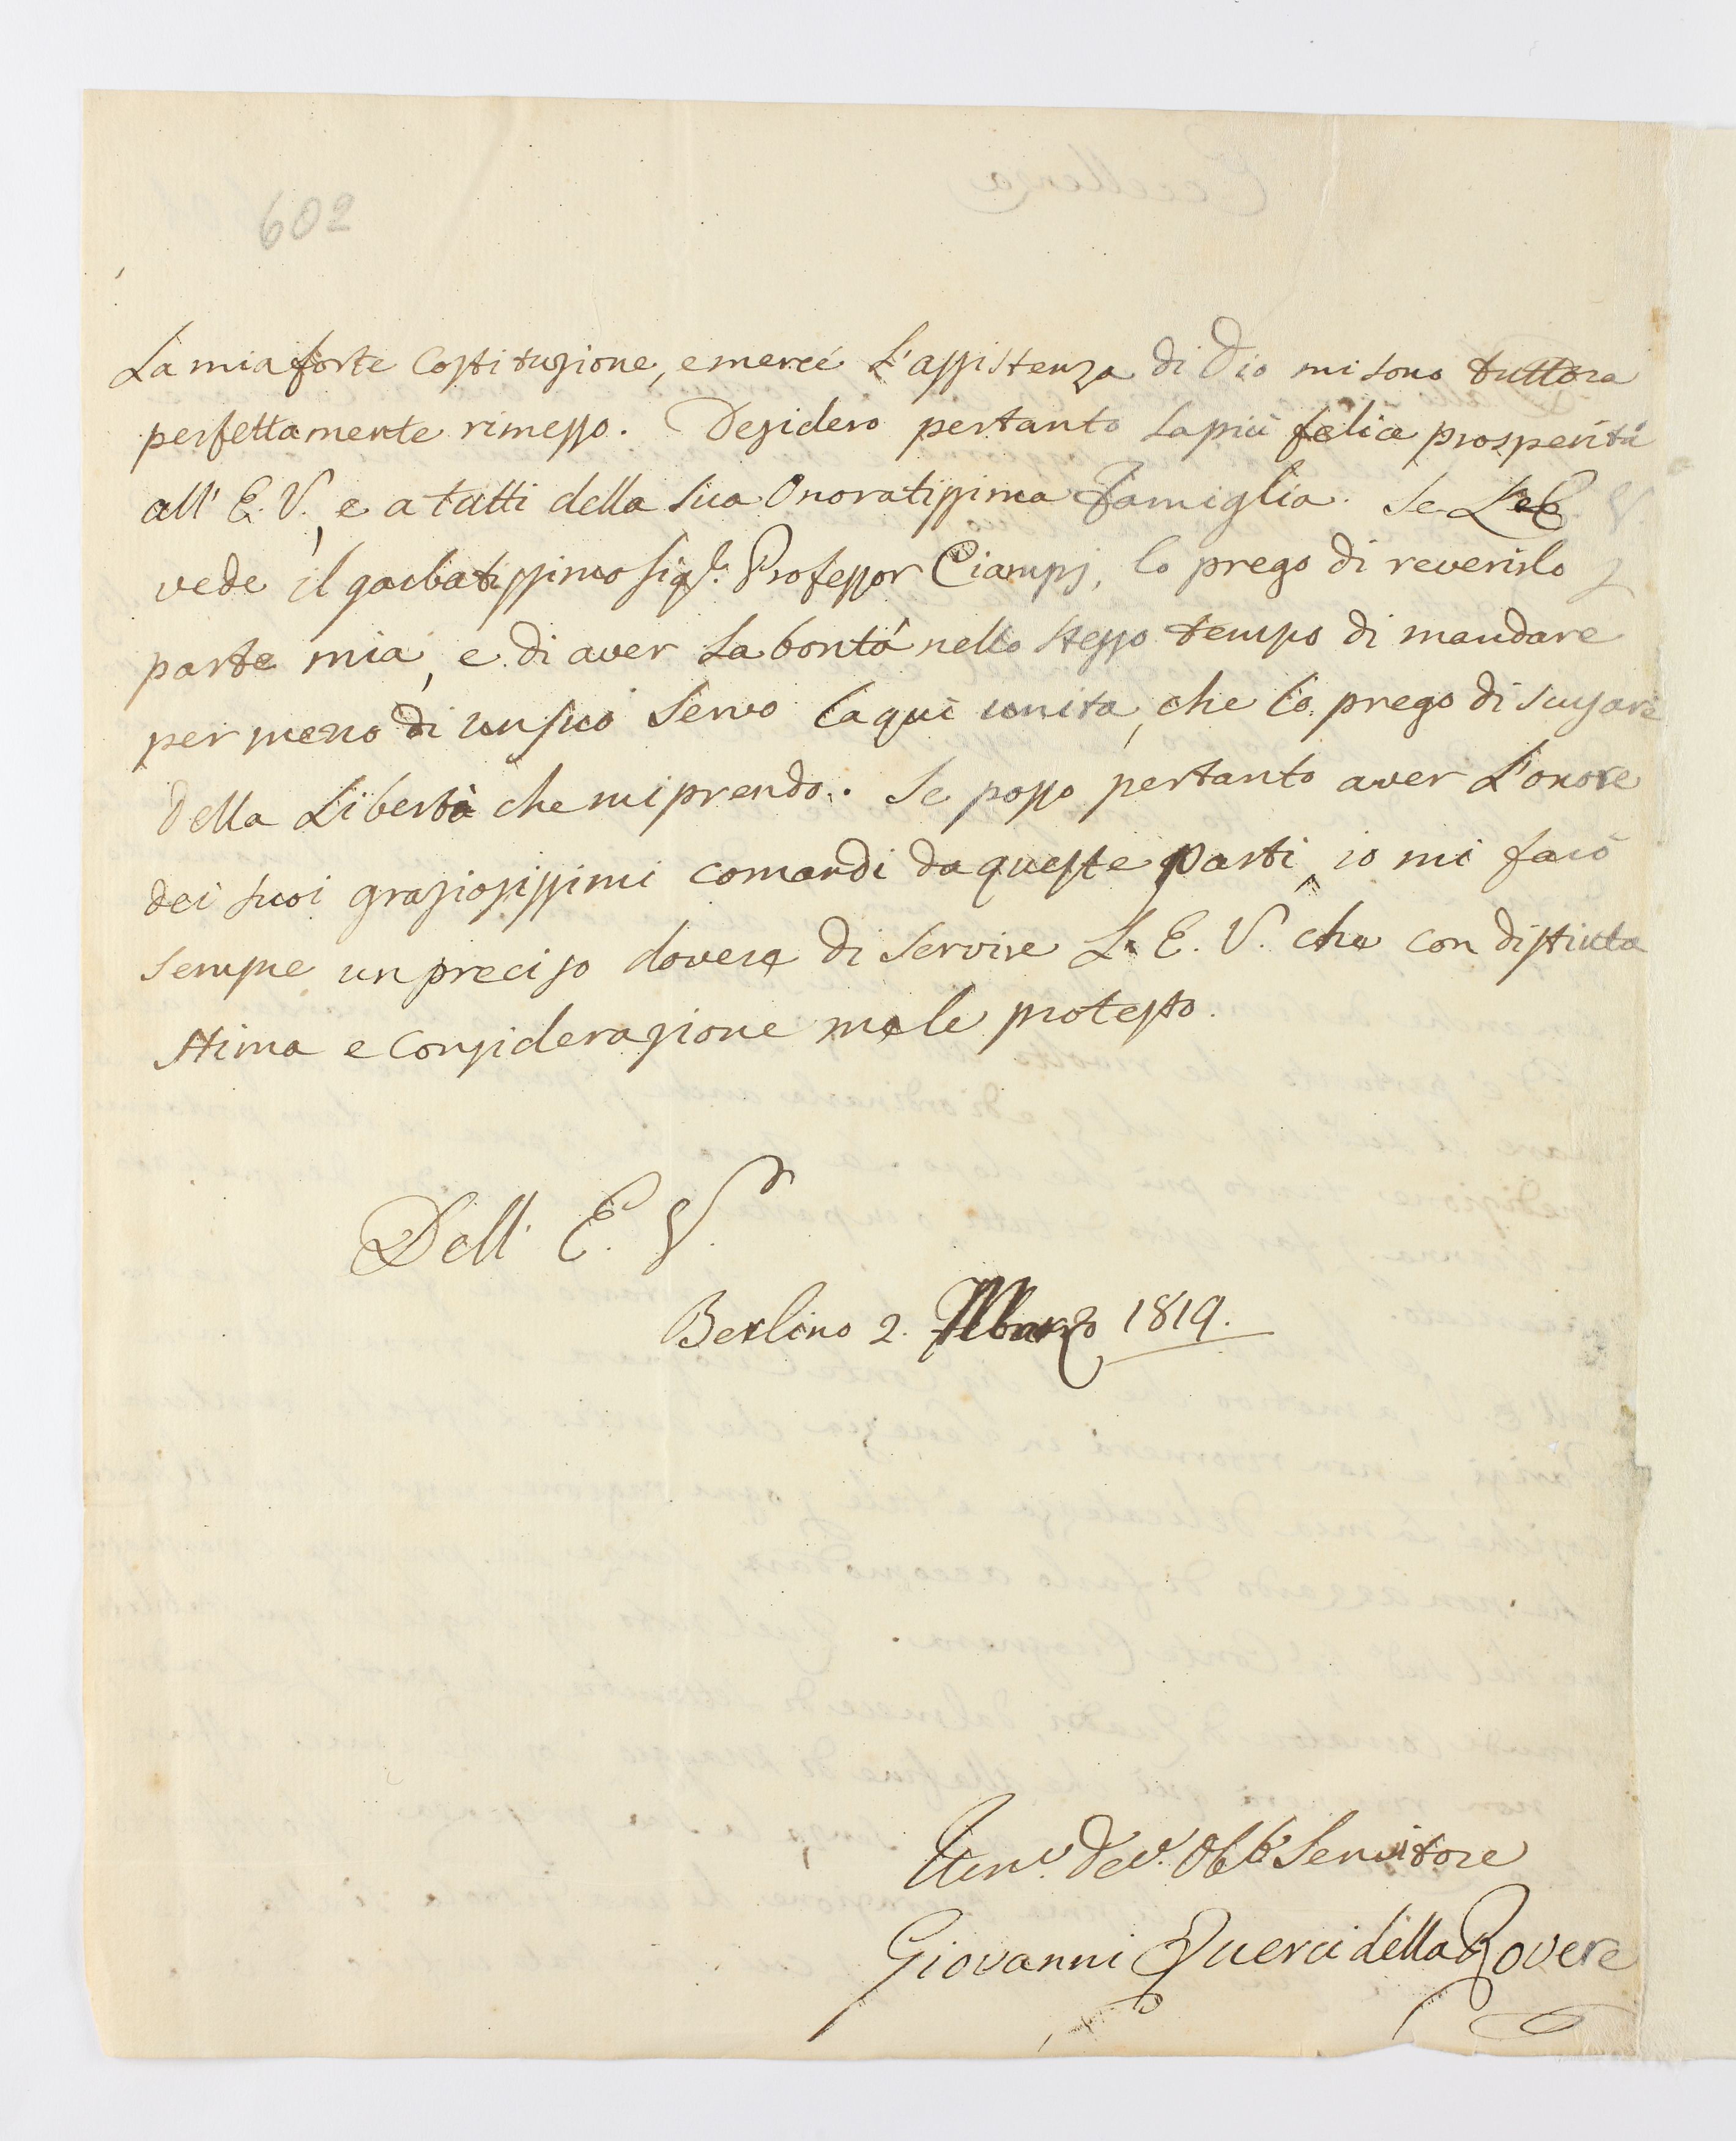 602
La mia forte Costituzione, e mercé L'assistenza di Dio mi sono tuttora
perfettamente rimesso. Desidero pertanto La più felice prosperità
all' E. V. e a tutti della Sua Onoratissima Famiglia. Se L'E. V.
vede il garbatissimo Sig.r Professor Ciampj, lo prego di reverirlo
parte mia, e di aver La bontà nello stesso tempo di mandare
per mezzo di un suo Servo la quì unita, che lo prego di scusare
della Libertà che mi prendo. Se posso pertanto aver L'onore
dei suoi graziosissimi comandi da queste parti, io mi farò
sempre un preciso dovere di servire L'E. V. che con distinta
stima e Considerazione me le protesto.
Dell' E. V.
Berlino 2. Marzo 1819.
Um.o Dev.o Obb.o Servitore
Giovanni Querci della Rovere